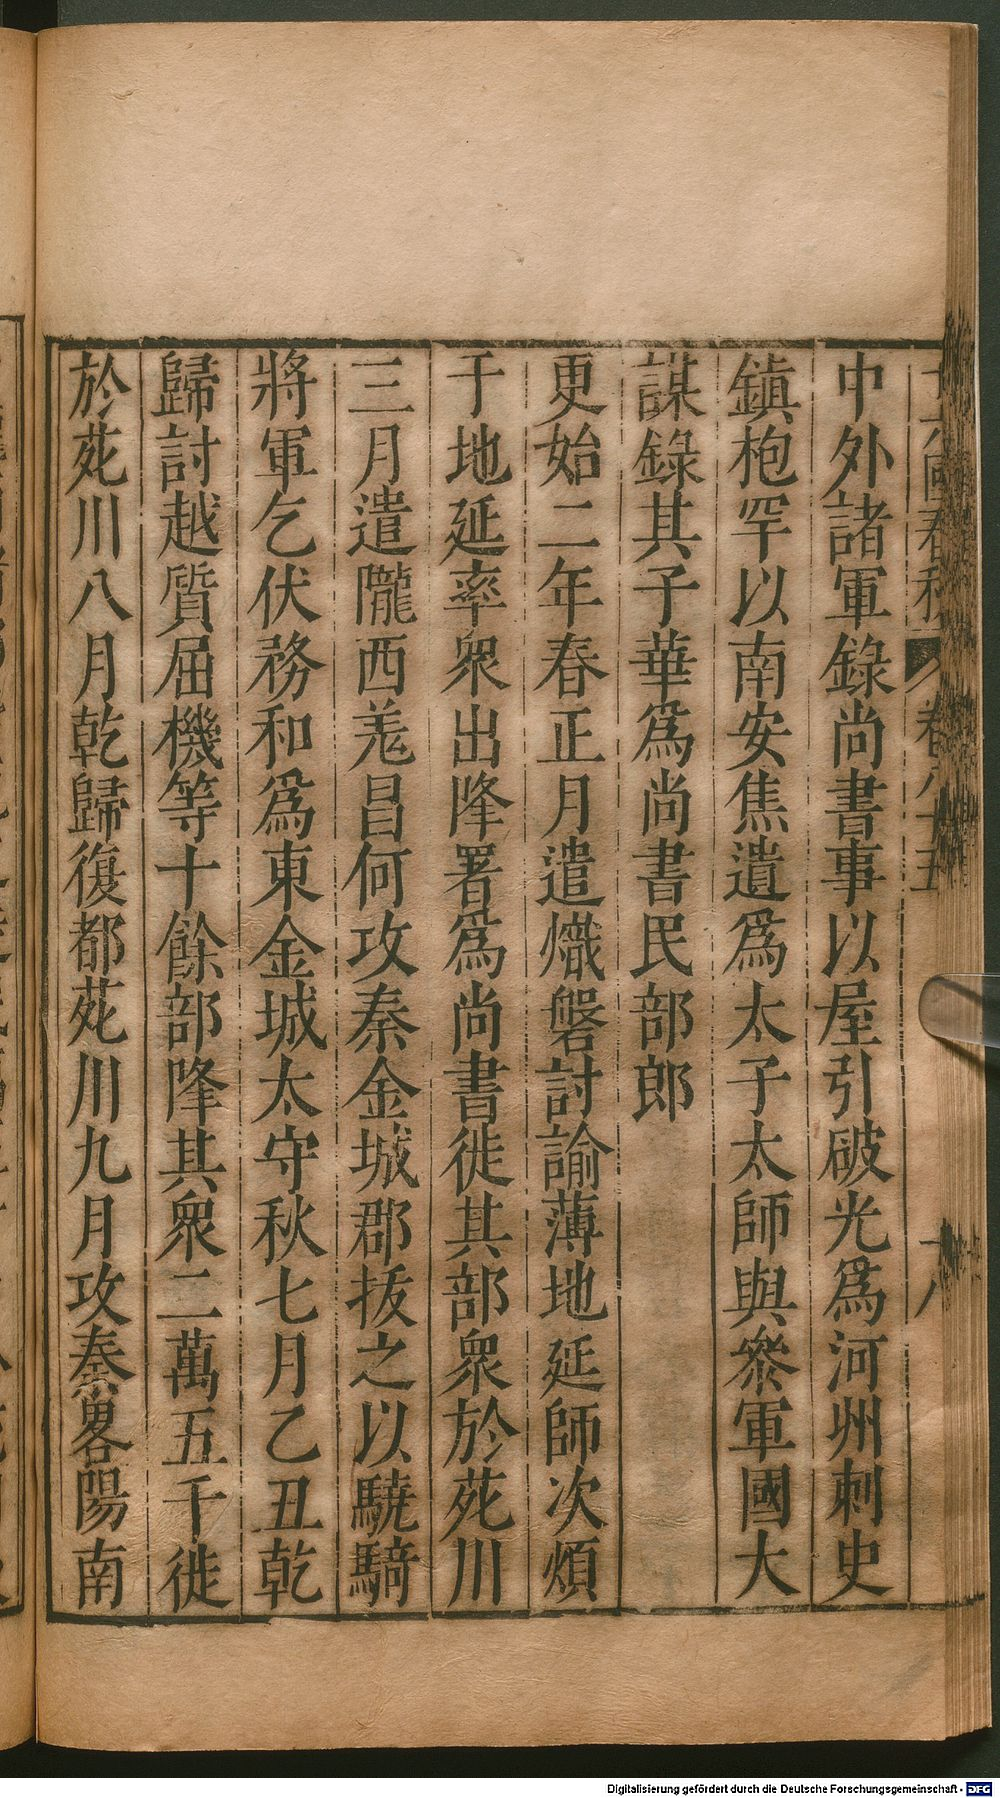 十六國春秋 卷八十五 十八
中外諸軍錄尚書事以屋引破光為河州刺史
鎮枹罕以南安焦遺為太子太師與叅軍國大
謀錄其子華為尚書民部郎
更始二年春正月遣熾磐討諭薄地延師次煩
于地延率衆出降署為尚書徙其部衆於苑川
三月遣隴西羗昌何攻秦金城郡拔之以驍騎
將軍乞伏務和為東金城太守秋七月乙丑乾
歸討越質屈機等十餘部降其衆二萬五千徙
於苑川八月乾歸復都苑川九月攻秦畧陽南
Digitalisierung gefördert durch die Deutsche Forschungsgemeinschaft - DFG